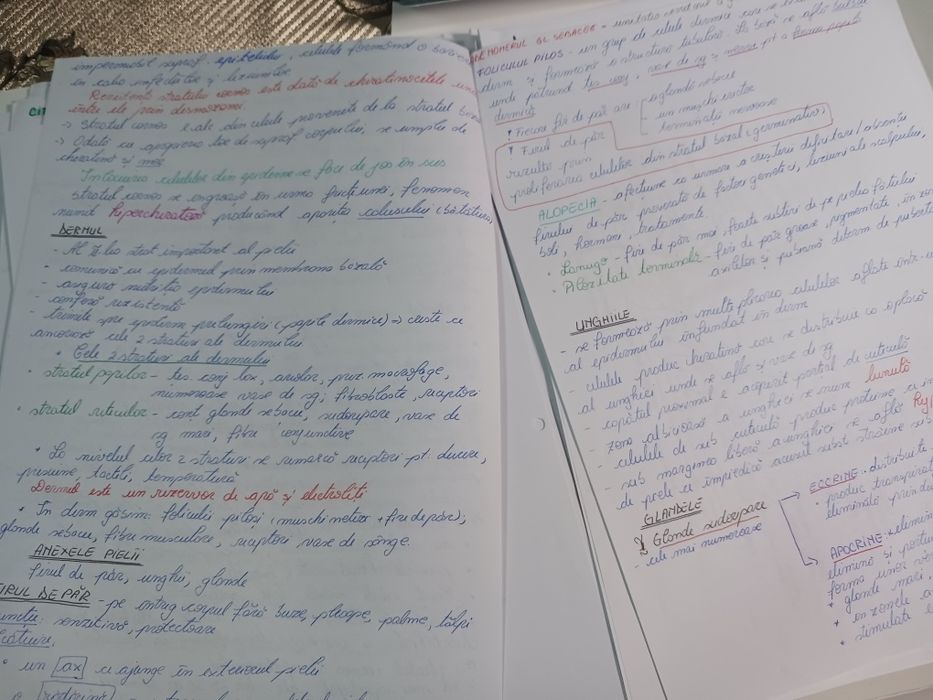 impermeabil suprof. epiteliului, celulele formând o barieră
în calea infecțiilor și leziunilor
Rezistența stratului cornos este dată de cheratinocitele unite
între ele prin desmozomi.
→ Stratul cornos e alc. din celule provenite de la stratul bazal
→ Odată cu apropierea lor de suprof corpului, se umplu de
cheratină și mor
Înlocuirea celulelor din epiderm se face de jos în sus
stratul cornos se îngroașă în urma fricțiunii, fenomen
numit hipercheratoză producând apariția calusului (bătătură)
DERMUL
- Al 2-lea strat important al pielii
- comunică cu epidermul prin membrana bazală
- asigură nutriția epidermului
- conferă rezistență
- trimite spre epiderm prelungiri (papile dermice) ⇒ creste ce
ancorează cele 2 straturi ale dermului
• Cele 2 straturi ale dermului
• stratul papilar - țes. conj lax, areolar, prez. macrofage,
numeroase vase de sg; fibroblaste, receptori
• stratul reticular - conț glande sebacee, sudoripare, vase de
sg mari, fibre conjunctive
• La nivelul celor 2 straturi se remarcă receptori pt. durere,
presiune, tactili, temperatură
Dermul este un rezervor de apă și electroliți
• În derm găsim: foliculii piloși (muschi neted + fire de păr);
glande sebacee, fibre musculare, receptori vase de sânge.
ANEXELE PIELII
firul de păr, unghii, glande
FIRUL DE PĂR - pe întreg corpul fără buze, pleoape, palme, tălpi
senzitivă, protectoare
• un ax ce ajunge în exteriorul pielii
GL SEBACEE - unitatea
FOLICULUL PILOS - un grup de celule dermice care se
derm și formează o structură tubulară. La bază se află bulbul
unde pătrund țes conj, vase de sg și nervi pt a forma papila
dermică
• Fiecare fir de păr are: glandă sebacee
un mușchi erector
terminații nervoase
• Firul de păr
rezultă prin
proliferarea celulelor din stratul bazal (germinativ)
ALOPECIA - afecțiune ca urmare a creșterii deficitare / absente
firului de păr provocată de factori genetici, leziuni ale scalpului,
boli, hormoni, tratamente.
• Lanugo - fire de păr moi, foarte subțiri de pe pielea fătului
• Pilozitate terminală - fire de păr groase, pigmentate, în
axilelor și pubiană determ de
UNGHIILE
- se formează prin multiplicarea celulelor aflate într-un
al epidermului înfundat în derm
- celulele produc cheratină care se distribuie ca o placă
al unghiei unde se află și vase de sg
- capătul proximal e acoperit parțial de cuticulă
- zona albicioasă a unghiei se num lunulă
- celulele de sub cuticulă produc
- sub marginea liberă a unghiei se află
de piele ce împiedică accesul subst străine sub
GLANDELE
1 Glande sudoripare
- cele mai numeroase
ECCRINE - distribuite
• produc transpirație
eliminată prin
APOCRINE • elimin
elimină și
forma unor
• glande mari,
• în zonele
• stimulate